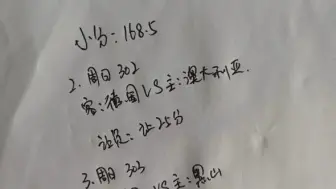 小分：168.5
2. 周日 302
客：德国 VS 主：澳大利亚.
让负：让25分
3. 周日 303
VS 主：黑山